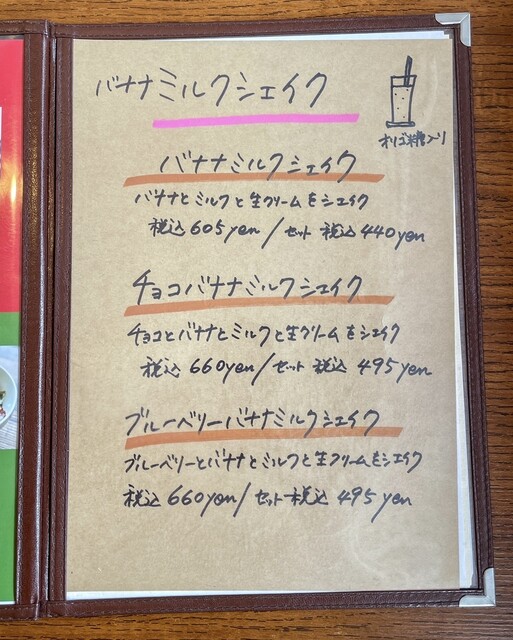 バナナミルクシェイク
オリゴ糖入り
バナナミルクシェイク
バナナとミルクと生クリームをシェイク
税込605yen/セット税込440yen
チョコバナナミルクシェイク
チョコとバナナとミルクと生クリームをシェイク
税込660yen/セット税込495yen
ブルーベリーバナナミルクシェイク
ブルーベリーとバナナとミルクと生クリームをシェイク
税込660yen/セット税込495yen